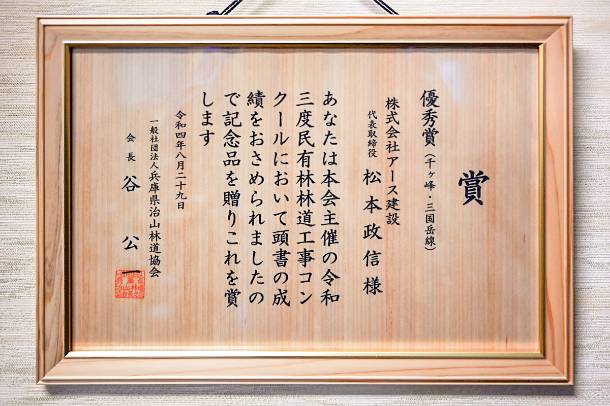 賞
優秀賞(千ヶ峰・三国岳線)
株式会社アース建設
代表取締役 松本政信様
あなたは本会主催の令和
三度民有林林道工事コン
クールにおいて頭書の成
績をおさめられましたの
で記念品を贈りこれを賞
します
令和四年八月二十九日
一般社団法人兵庫県治山林道協会
会長 谷公一